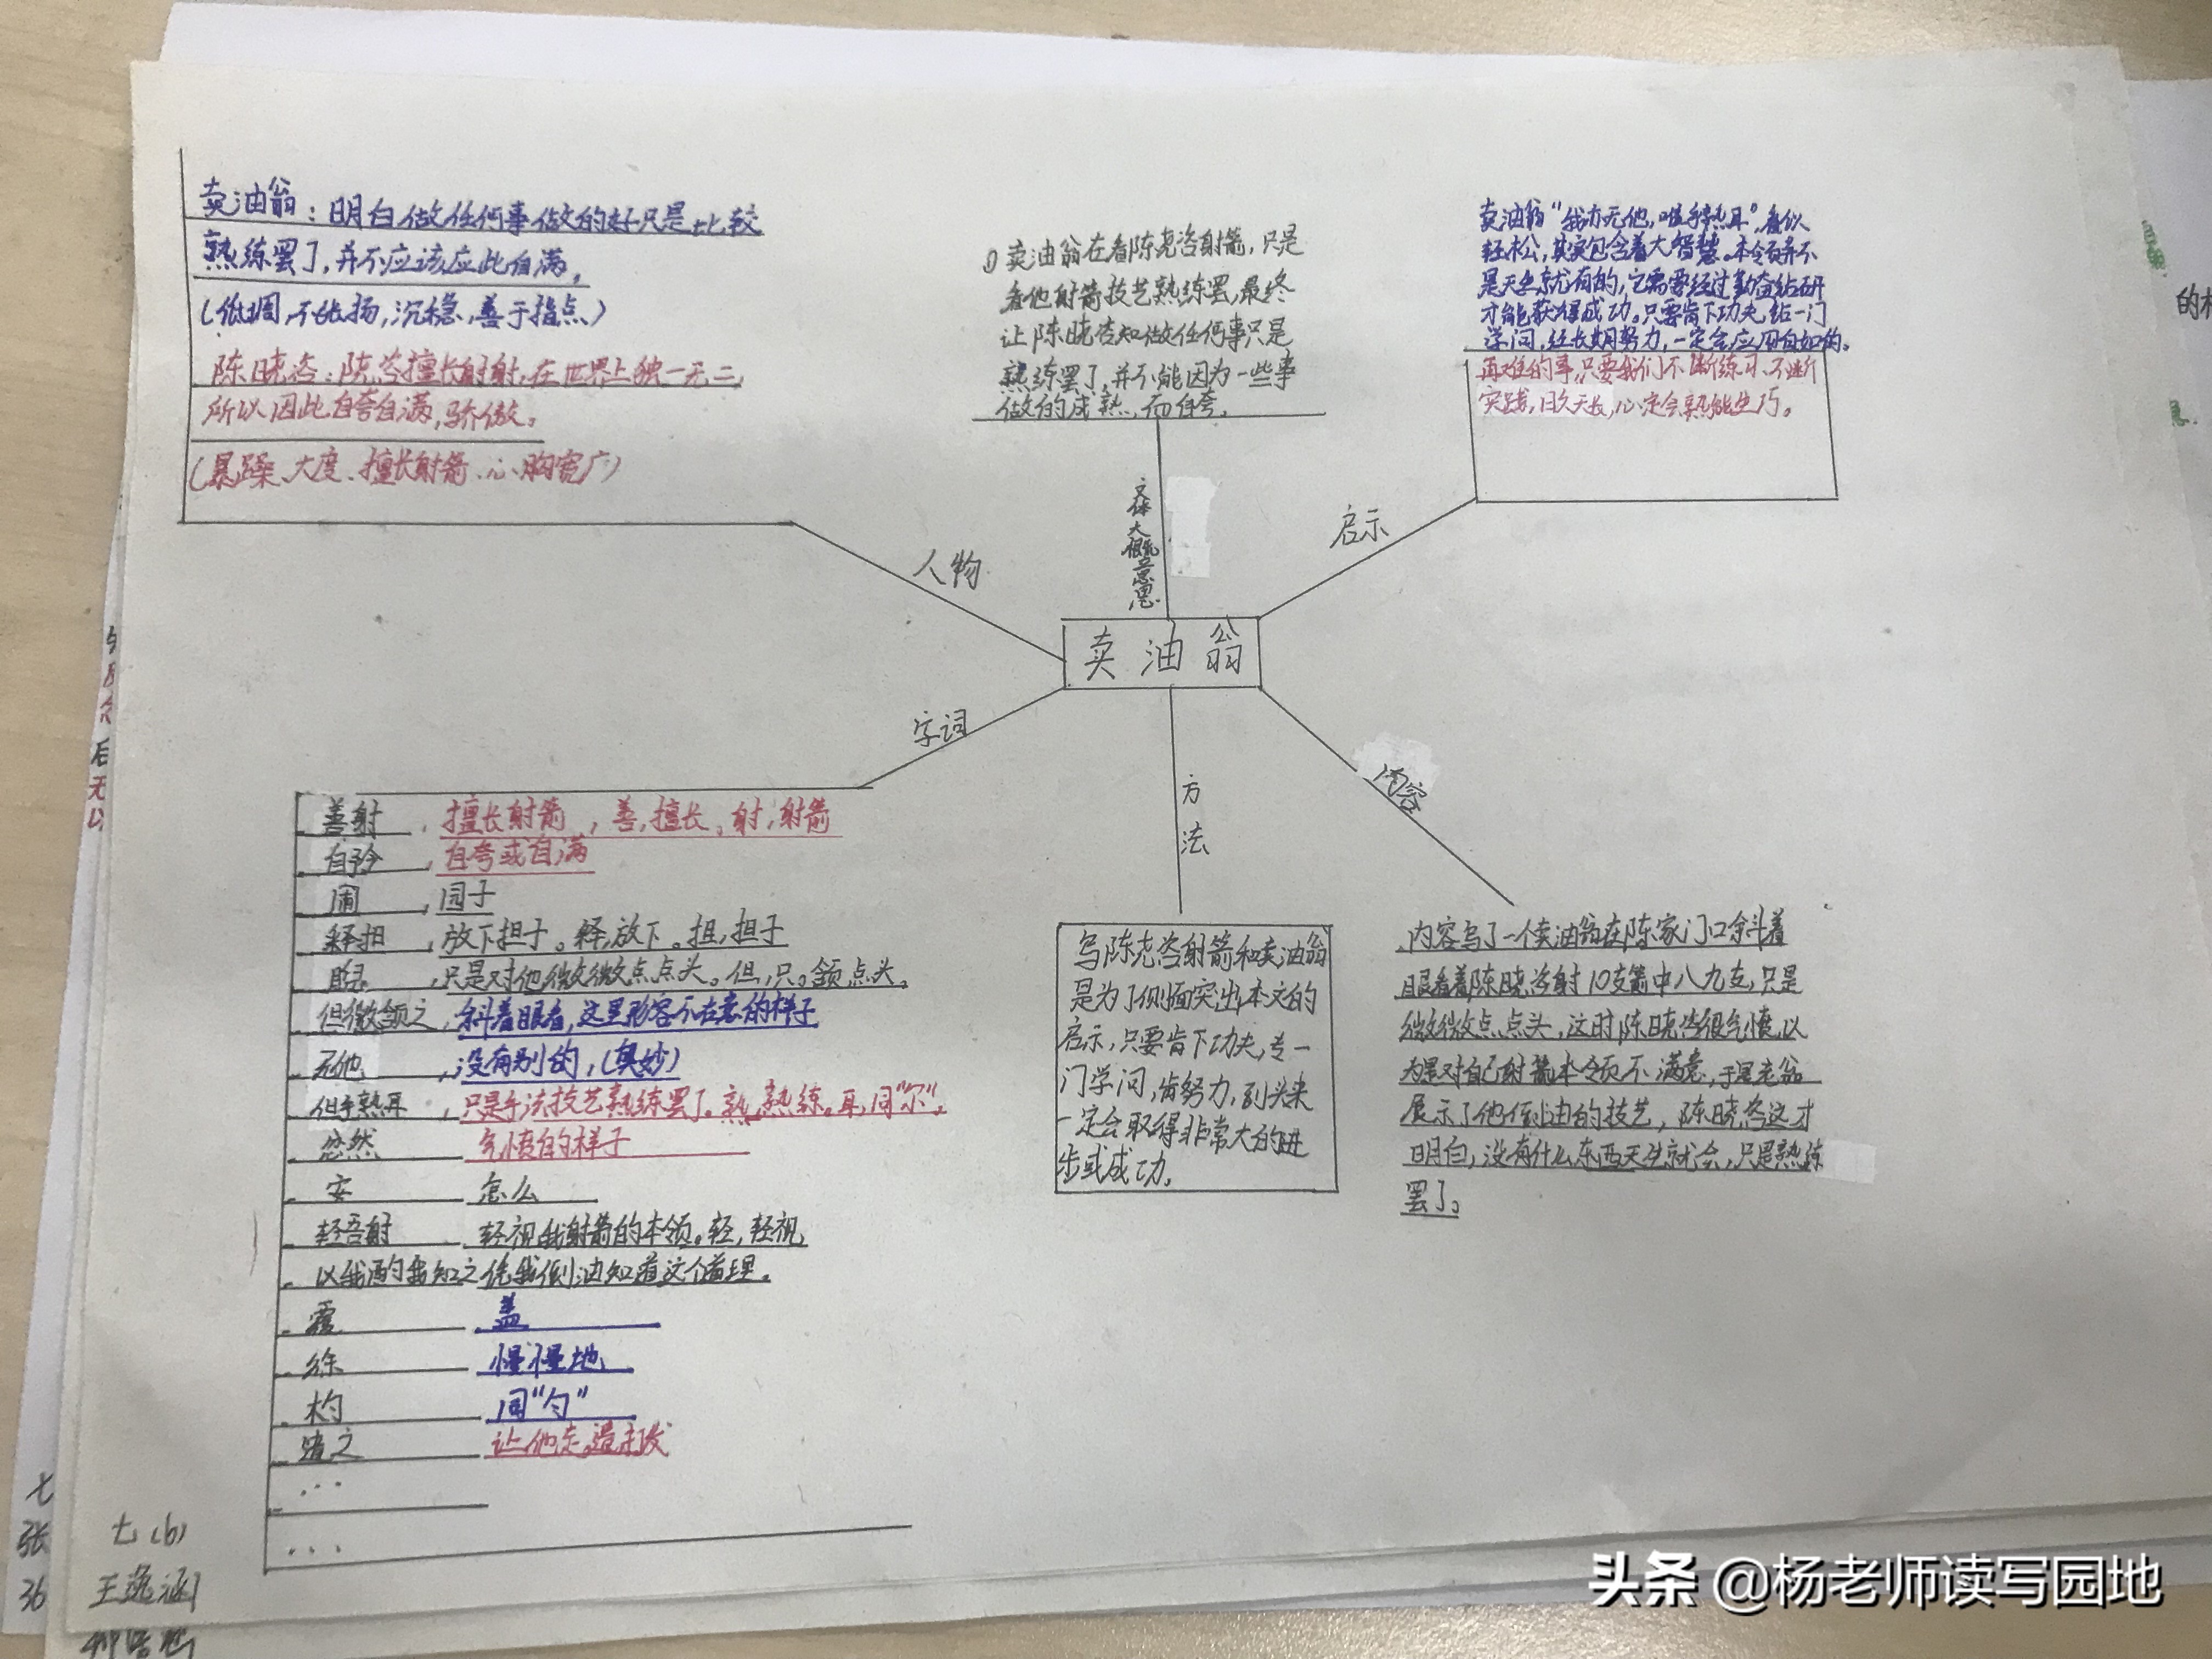 卖油翁：明白做任何事做的好只是比较
熟练罢了，并不应该应此自满。
（低调，不张扬，沉稳，善于指点）
陈晓咨：陈咨擅长射射，在世界上独一无二，
所以因此自夸自满，骄傲。
（暴躁、大度、擅长射箭、心胸宽广）
人物
卖油翁在看陈尧咨射箭，只是
看他射箭技艺熟练罢，最终
让陈晓咨知做任何事只是
熟练罢了，并不能因为一些事
做的成熟，而自夸。
文体大概意思
卖油翁“我亦无他，唯手熟耳”，看似
轻松，其实包含着大智慧。本领并不
是天生就有的，它需要经过勤奋钻研
才能获得成功。只要肯下功夫，钻一门
学问，经长期努力，一定会应用自如的。
再难的事，只要我们不断练习、不断
实践，日久天长，心定会熟能生巧。
启示
卖油翁
字词
善射，擅长射箭，善，擅长，射，射箭
自矜，自夸或自满
圃，园子
释担，放下担子。释，放下。担，担子
，只是对他微微点点头。但，只。颔点头。
但微颔之，斜着眼看，这里形容不在意的样子
无他，没有别的，（奥妙）
但手熟耳，只是手法技艺熟练罢了。熟，熟练。耳，同“尔”。
忿然 气愤的样子
安 怎么
轻吾射 轻视我射箭的本领。轻，轻视
以我酌我知之 凭我倒油知道这个道理。
覆 盖
徐 慢慢地
杓 同“勺”
遣之 让他走。遣
...
...
方法
写陈尧咨射箭和卖油翁
是为了侧面突出本文的
启示，只要肯下功夫，专一
门学问，肯努力，到头来
一定会取得非常大的进
步或成功。
内容
内容写了一个卖油翁在陈家门口斜着
眼看着陈晓咨射10支箭中八九支，只是
微微点点头，这时陈晓咨很气愤，以
为是对自己射箭本领不满意，于是老翁
展示了他倒油的技艺，陈晓咨这才
明白，没有什么东西天生就会，只是熟练
罢了。
七(6)
王逸涵
七
张
36
头条 @杨老师读写园地